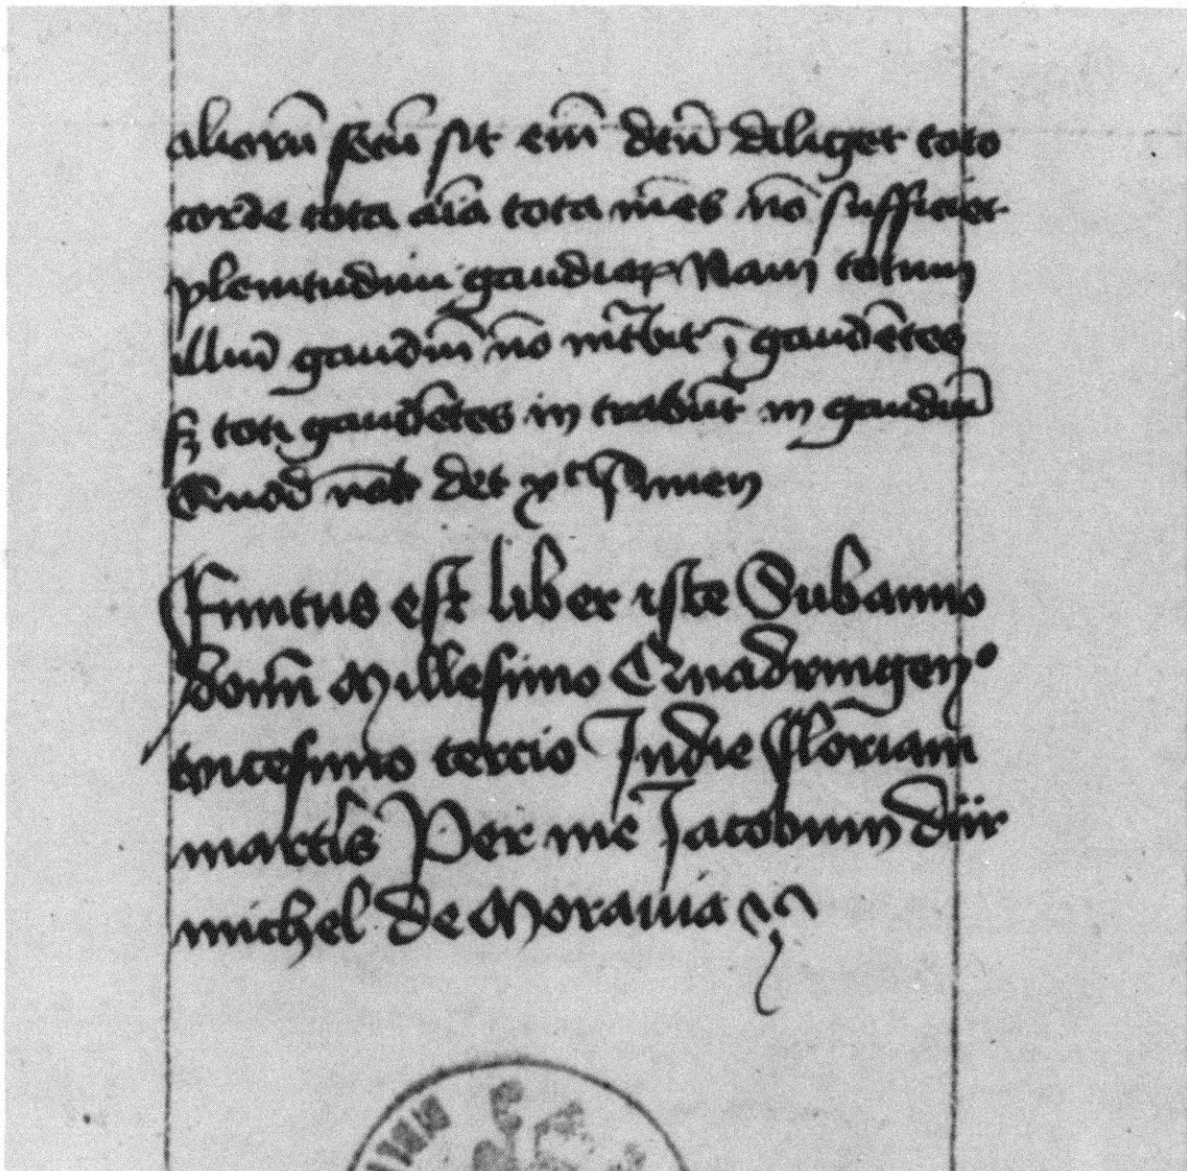 aliorū sctū sit em̄ dm̄ diliget toto
corde tota aīa tota mēs nō sufficiet
plenitudini gaudiorꝫ Nam totum
illud gaudiū nō intrabit ī gaudētes
sꝫ toti gaudētes in trabūt in gaudiū
Quod nob det xpc Amen
Finitus est liber iste Sub anno
domī Millesimo Quadringen⁰
tricesimo tercio In die Floriani
martīs Per me Jacobum dür
michel de Morauia
BIBLI